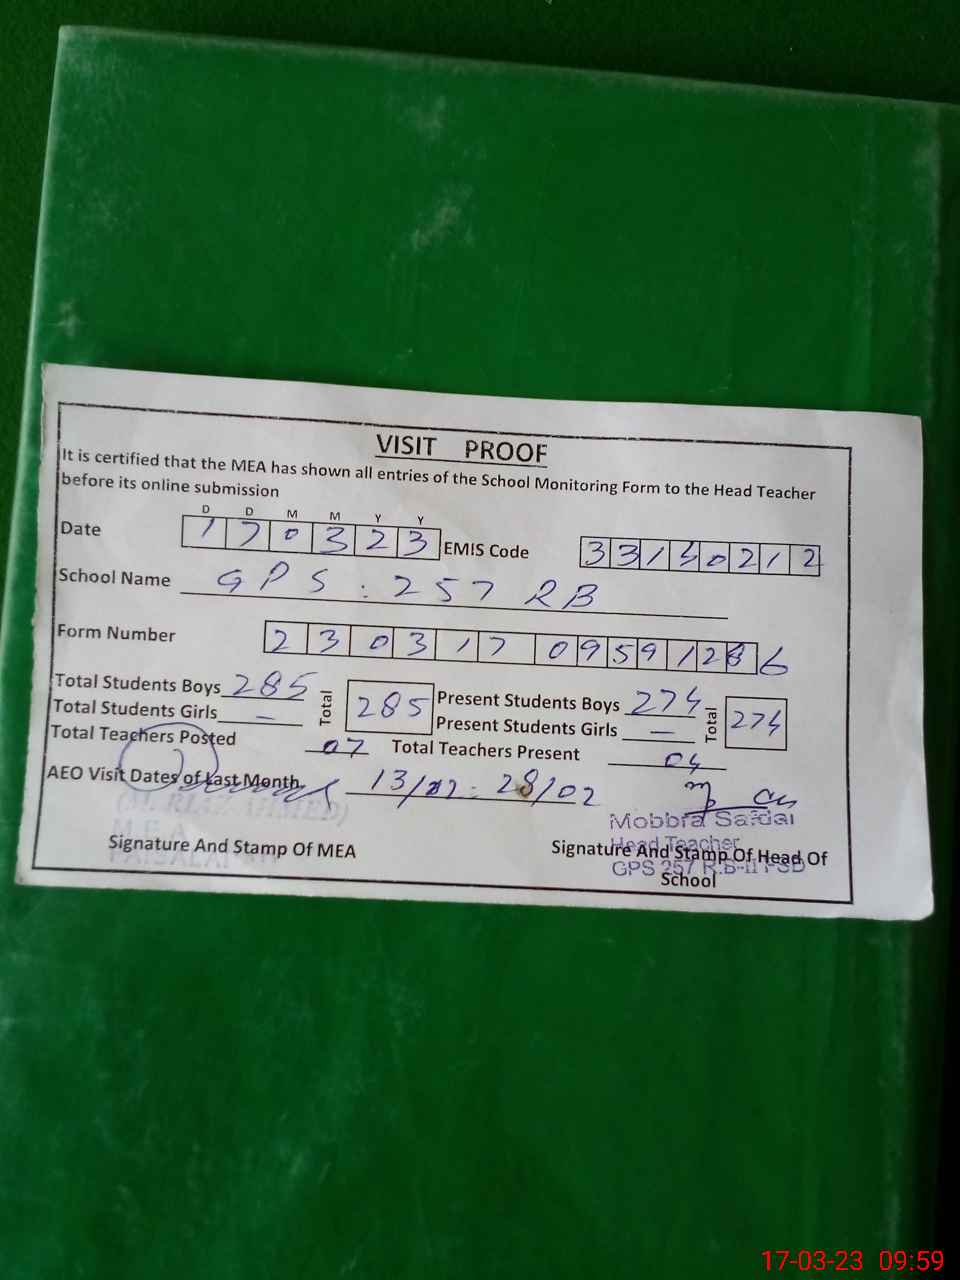 VISIT PROOF
It is certified that the MEA has shown all entries of the School Monitoring Form to the Head Teacher
before its online submission
D D M M Y Y
Date 170323 EMIS Code 33130212
School Name GPS : 257 RB
Form Number 23031709591286
Total Students Boys 285 Total 285 Present Students Boys 274 Total 274
Total Students Girls — Present Students Girls —
Total Teachers Posted 07 Total Teachers Present 04
AEO Visit Dates of Last Month 13/02 : 28/02
(M. RIAZ AHMED)
M E A
FAISALABAD
Signature And Stamp Of MEA
Mobbra Safdar
Head Teacher
GPS 257 R.B-II FSD
Signature And Stamp Of Head Of
School
17-03-23 09:59